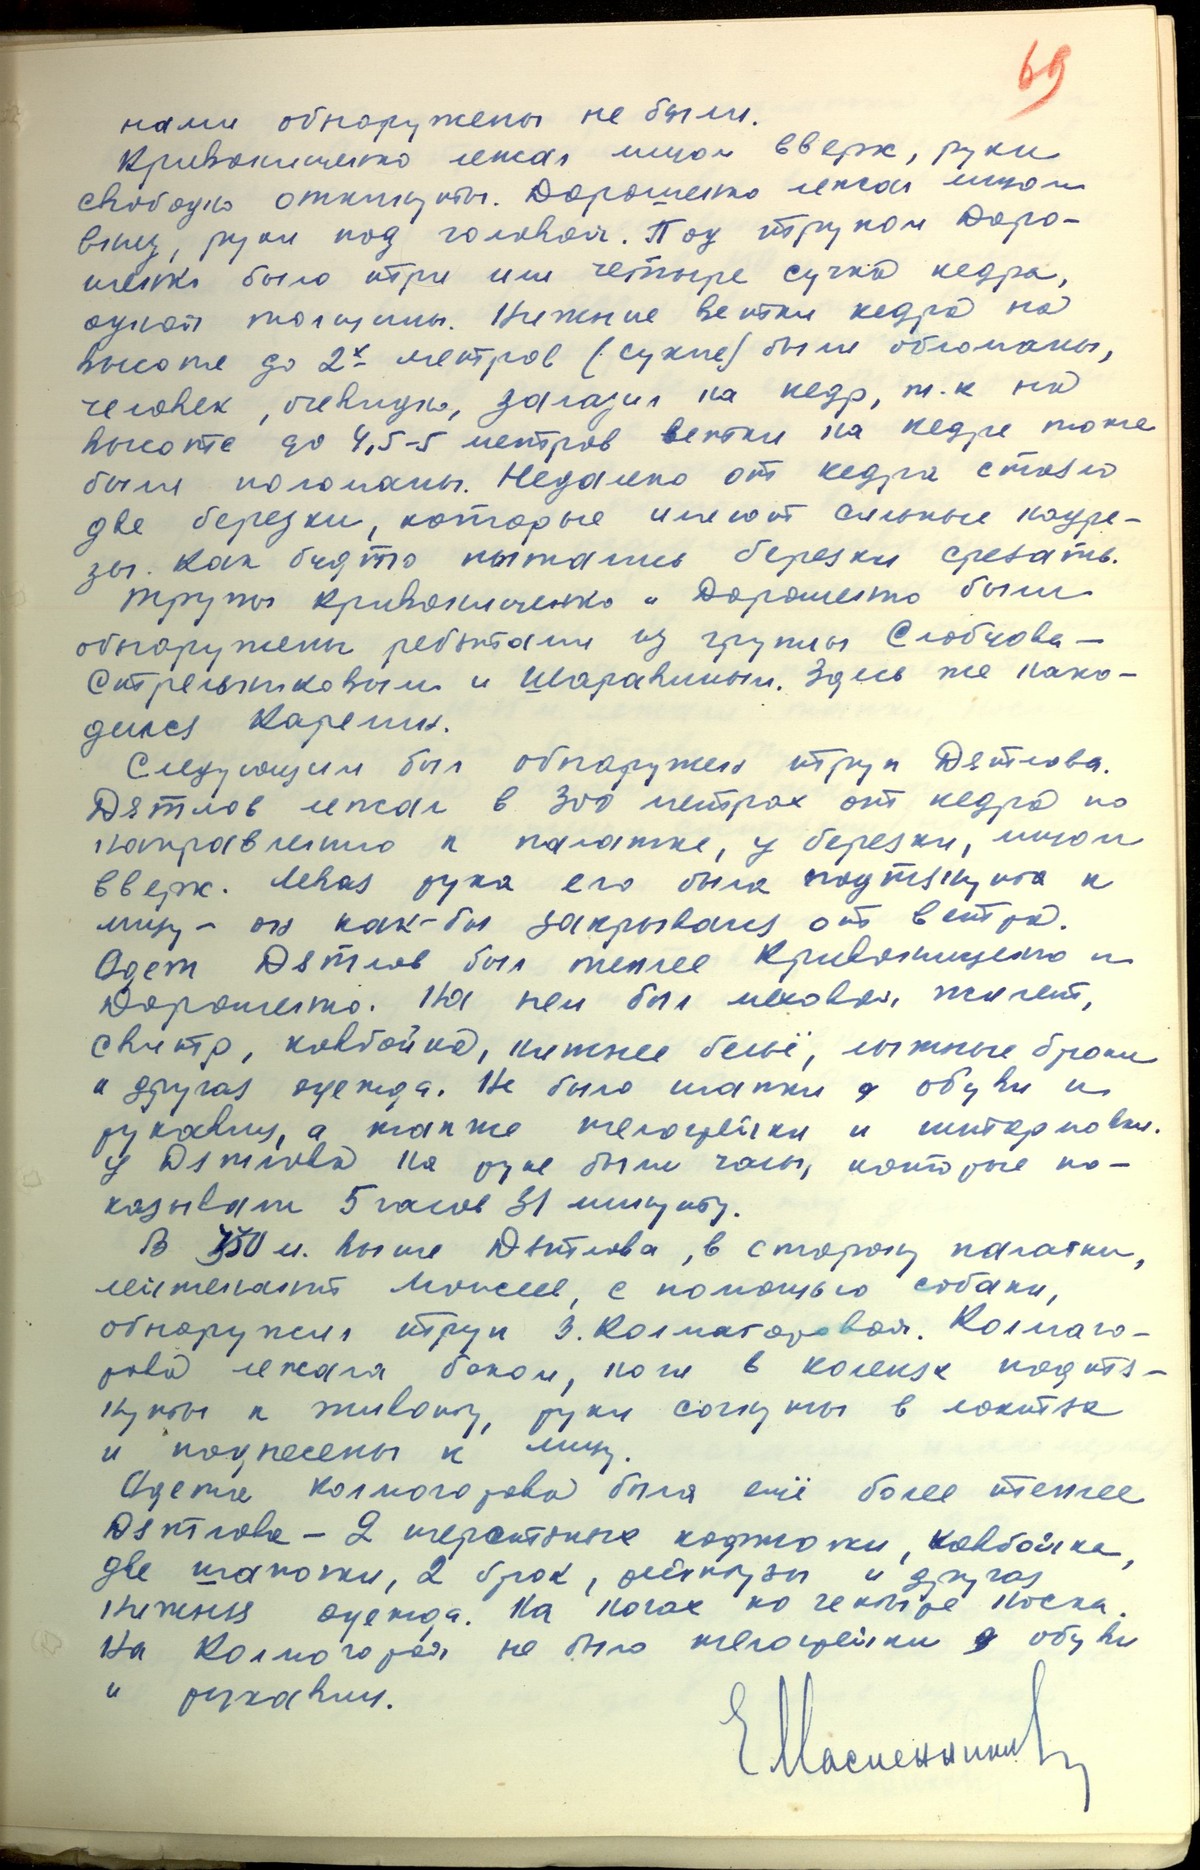 69
нами обнаружены не были.
Кривонищенко лежал лицом вверх, руки
свободно откинуты. Дорошенко лежал лицом
вниз, руки под головой. Под трупом Доро-
шенко было три или четыре сучка кедра,
одной толщины. Нижние ветки кедра на
высоте до 2х метров (сухие) были обломаны,
человек, очевидно, залазил на кедр, т.к на
высоте до 4,5-5 метров ветки на кедре тоже
были поломаны. Недалеко от кедра стояло
две березки, которые имеют сильные надре-
зы. Как будто пытались березки срезать.
Трупы Кривонищенко и Дорошенко были
обнаружены ребятами из группы Слобцова -
Стрельниковым и Шаравиным. Здесь же нахо-
дился Карелин.
Следующим был обнаружен труп Дятлова.
Дятлов лежал в 300 метрах от кедра по
направлению к палатке, у березки, лицом
вверх. Левая рука его была подтянута к
лицу - он как-бы закрывался от ветра.
Одет Дятлов был теплее Кривонищенко и
Дорошенко. На нем был меховой жилет,
свитр, ковбойка, нижнее бельё, лыжные брюки
и другая одежда. Не было шапки, обуви и
рукавиц, а также телогрейки и штормовки.
У Дятлова на руке были часы, которые по-
казывали 5 часов 31 минуту.
В 350 м. выше Дятлова, в сторону палатки,
лейтенант Моисеев, с помощью собаки,
обнаружил труп З. Колмагоровой. Колмаго-
рова лежала боком, ноги в коленях подтя-
нуты к животу, руки согнуты в локтях
и поднесены к лицу.
Одета Колмогорова была ещё более теплее
Дятлова - 2 шерстяных кофточки, ковбойка,
две шапочки, 2 брюк, рейтузы и другая
нижняя одежда. На ногах по четыре носка.
На Колмогорой не было телогрейки, обуви
и рукавиц.
Е Масленников